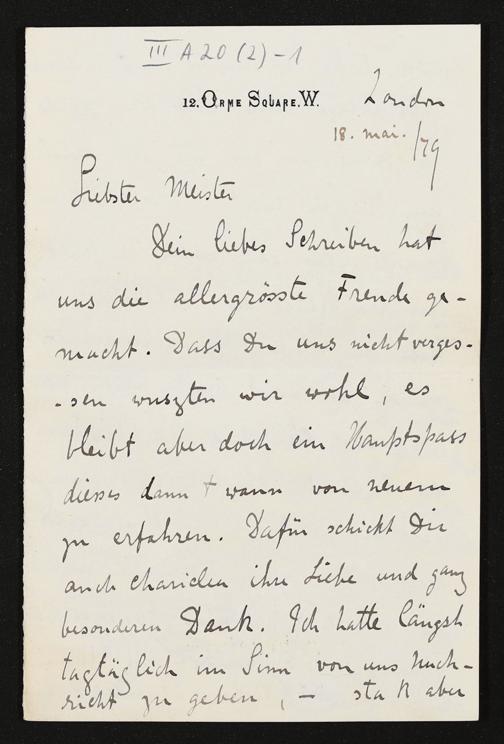 III A 20 (2) - 1
12, ORME SQUARE, W.
London
18. mai. /79
Liebster Meister
Dein liebes Schreiben hat
uns die allergrösste Freude ge-
macht. Dass Du uns nicht verges-
-sen wuszten wir wohl, es
bleibt aber doch ein Hauptspass
dieses dann + wann von neuem
zu erfahren. Dafür schickt Dir
auch Chariclea ihre Liebe und ganz
besonderen Dank. Ich hatte längst
tagtäglich im Sinn von uns Nach-
richt zu geben, – stak aber